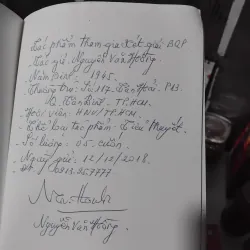 Tác phẩm tham gia xét giải BQP
Tác giả: Nguyễn Văn Hồng.
Năm sinh: 1945.
Thường trú: Số 117 Văn P13
Q. Tân Bình - TPHCM.
Hội viên: HNV/TPHCM.
Thể loại tác phẩm: Tiểu thuyết.
Số lượng: 05 cuốn.
Ngày gửi: 12/12/2018.
ĐT: 0913.959777
Nguyễn Văn Hồng.